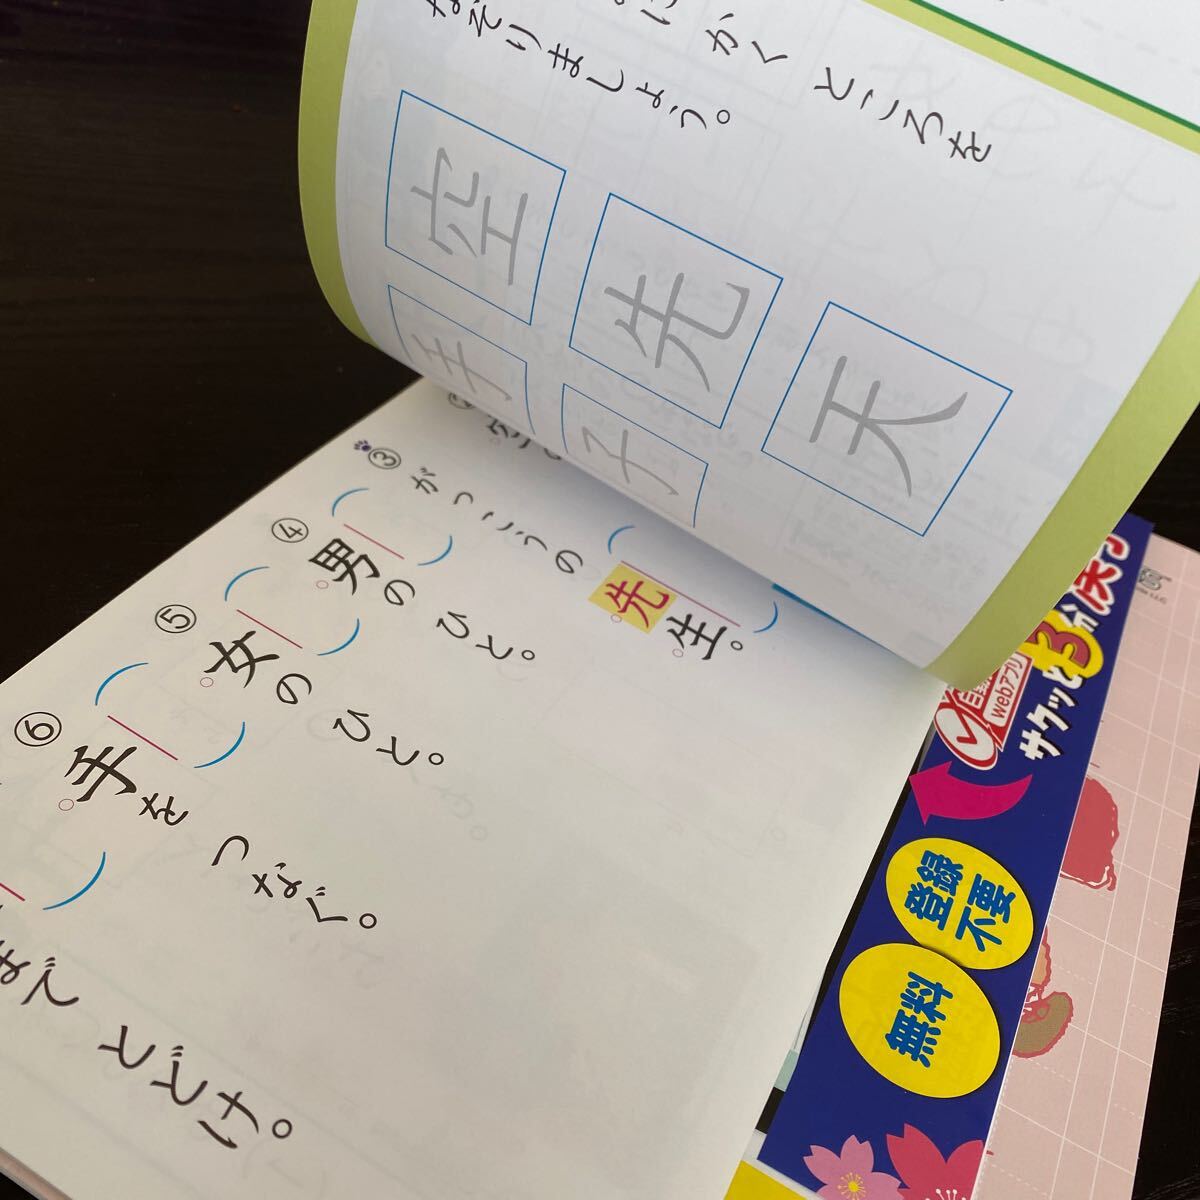 かく ところを
なぞりましょう。
天
先
空
子
手
③ がっこうの 先生。
④ 男の ひと。
⑤ 女の ひと。
⑥ 手を つなぐ。
まで とどけ。
webアプリ
サクッと3分
登録
不要
無料